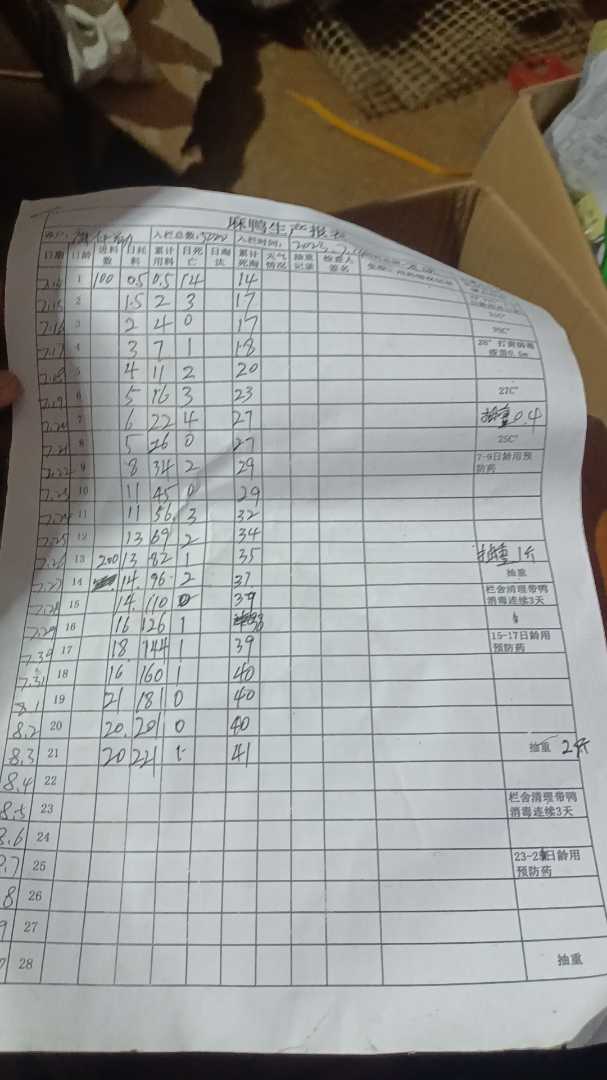 麻鸭生产报表
入栏总数: 5000 入栏时间: 2023.7.14
日期 日龄 进料数 日耗料 累计用料 日死亡 日淘汰 累计死淘 天气情况 抽重记录 检查人签名
7.14 1 100 0.5 0.5 14 14
7.15 2 1.5 2 3 17
7.16 3 2 4 0 17
7.17 4 3 7 1 18 28°
7.18 5 4 11 2 20
7.19 6 5 16 3 23 27C°
7.20 7 6 22 4 27 抽重0.4
7.21 8 5 26 0 27 25C°
7.22 9 8 34 2 29 7-9日龄用预防药
7.23 10 11 45 0 29
7.24 11 11 56 3 32
7.25 12 13 69 2 34
7.26 13 200 13 82 1 35 抽重1斤
7.27 14 14 96 2 37 抽重
7.28 15 14 110 0 39 栏舍清理带鸭消毒连续3天
7.29 16 16 126 1
7.30 17 18 144 1 39 15-17日龄用预防药
7.31 18 16 160 1 40
8.1 19 21 181 0 40
8.2 20 20 201 0 40
8.3 21 20 221 1 41 抽重 2斤
8.4 22
8.5 23 栏舍清理带鸭消毒连续3天
8.6 24
8.7 25 23-25日龄用预防药
8 26
9 27
28 抽重